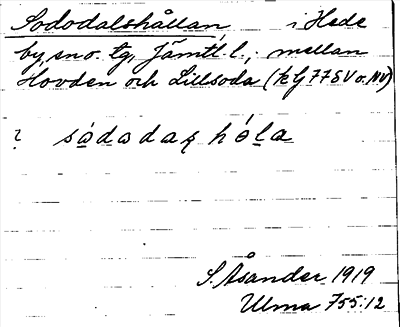 Sododalshållan i Hede
by, sno. tg, Jämtl. l.; mellan
Hovden och Lillsoda (kG 77 SV o. NV)
? sòdadaʂ hóla
S. Åsander 1919
Ulma 755:12